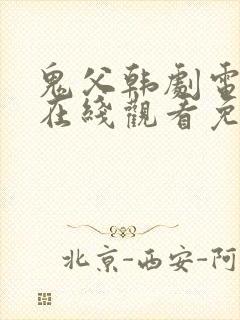 鬼父韩劇電
在綫觀看免
北京-西安-阿